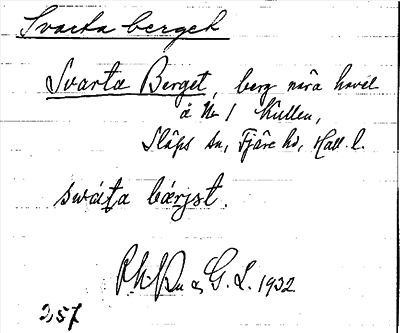 Svarta berget
Svarta Berget, berg nära havet
å No 1 Kullen,
Släps sn, Fjäre hd, Hall. l.
swáʈa bǽrjst.
G. L. 1932
257